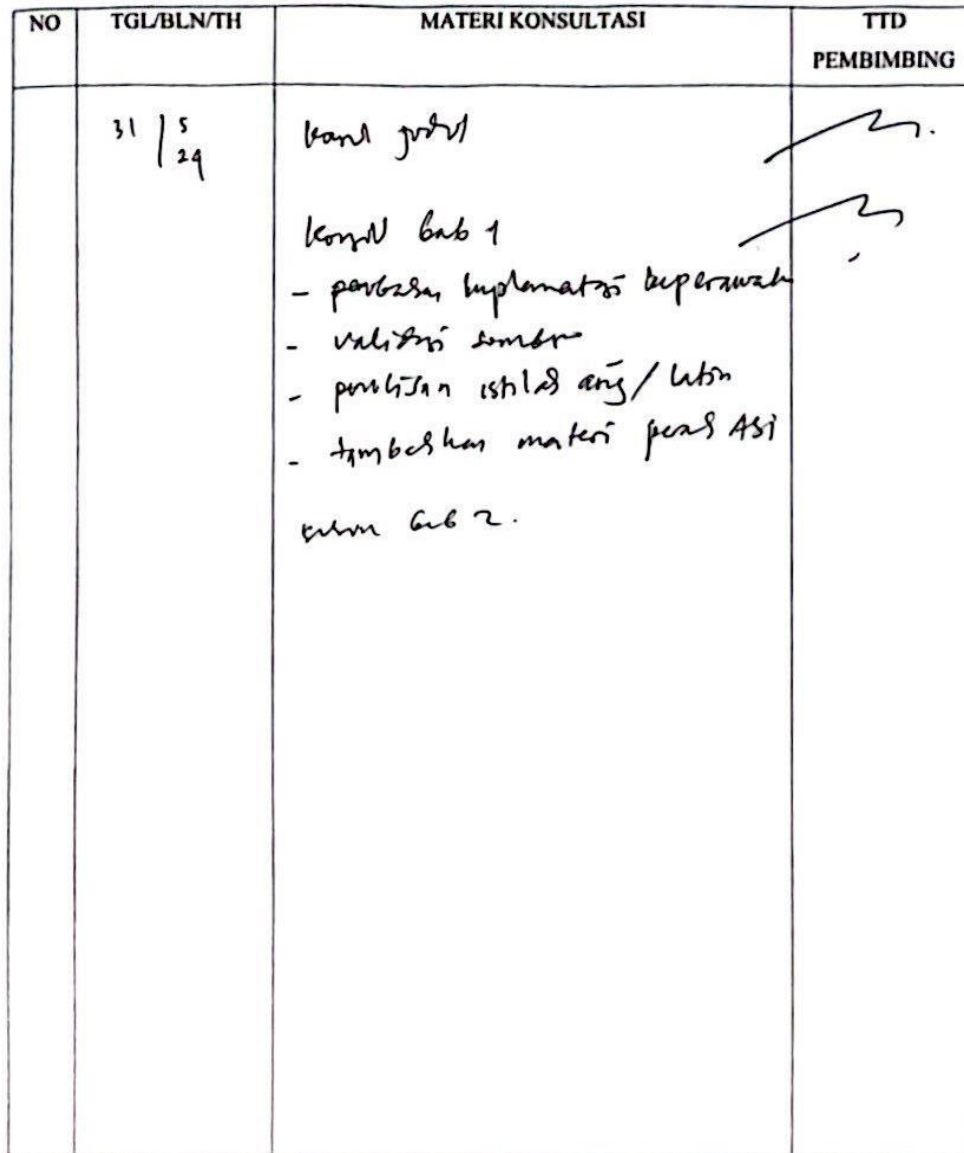 NO TGL/BLN/TH MATERI KONSULTASI TTD
PEMBIMBING
31 / 5
24
Konsul judul
Konsul bab 1
- implementasi keperawatan
- validasi sumber
- penulisan istilah asing / latin
- tambahkan materi perah ASI
bab 2.